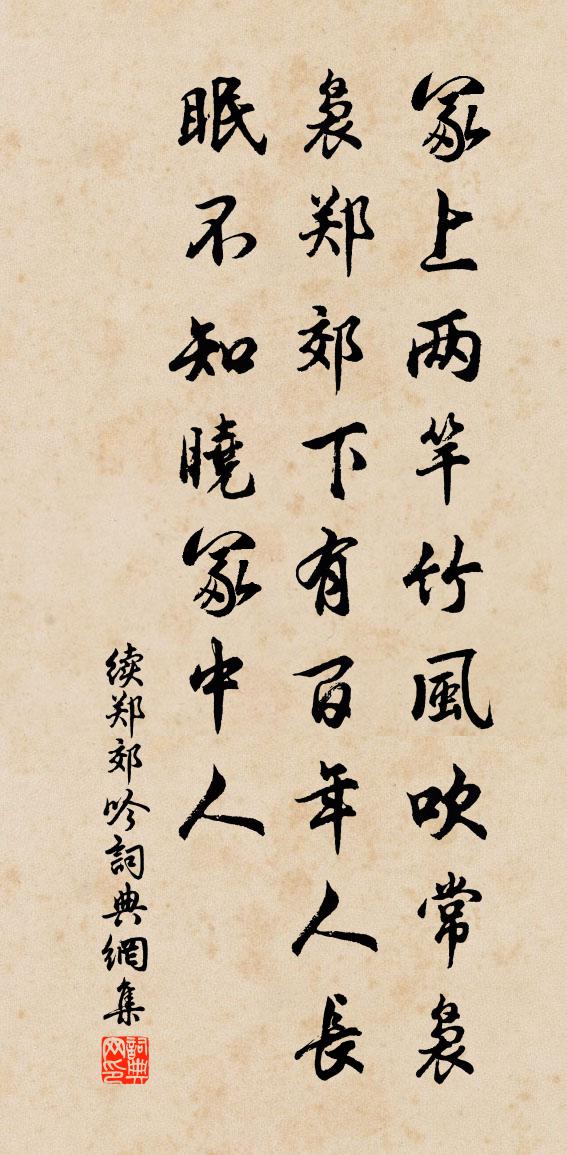 冢上两竿竹風吹常袅
袅郑郊下有百年人長
眠不知曉冢中人
续郑郊吟詞典網集
詞典
网印